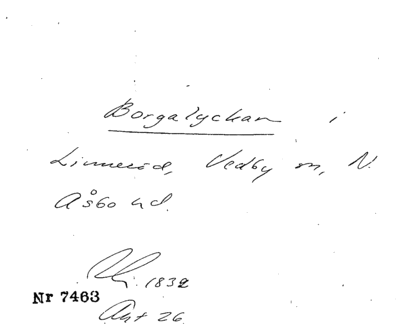 Borgalyckan i
Linneröd, Vedby sn, N.
Åsbo hd.
1832
Nr 7463
Akt 26